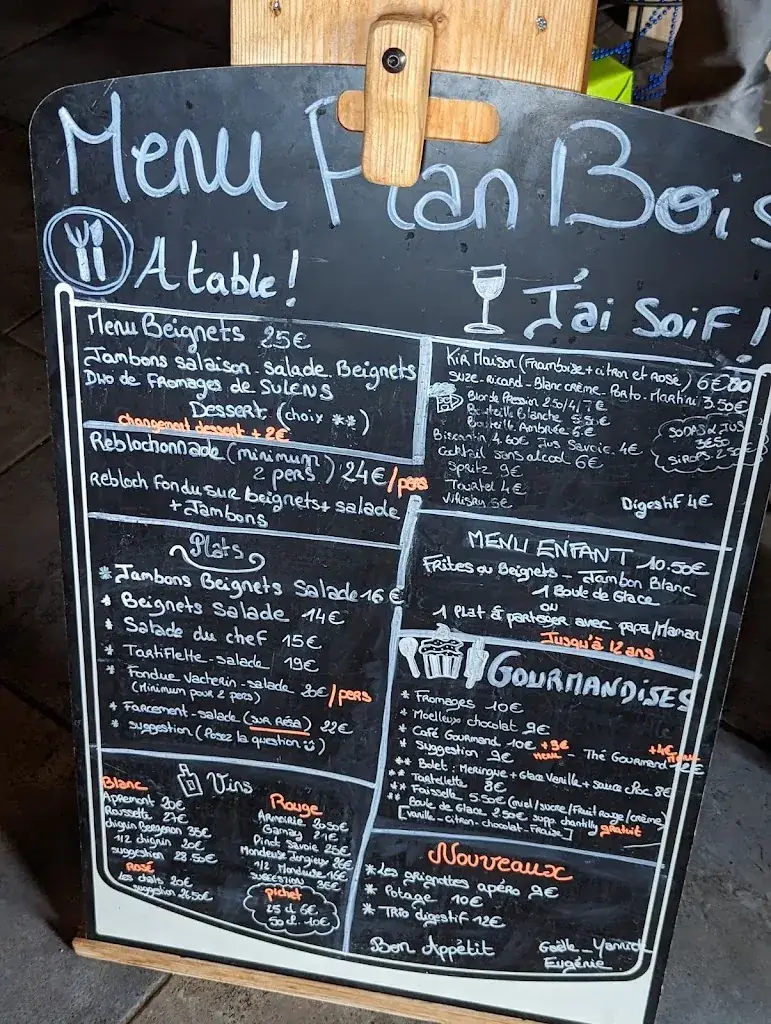 Menu Plan Bois
A table !
Menu Beignets 25€
Jambons salaison - salade Beignets
Duo de Fromages de SULENS
Dessert (choix **)
changement dessert + 2€
Reblochonnade (minimum
2 pers) 24€/pers
Rebloch Fondu sur beignets + salade
+ Jambons
Plats
* Jambons Beignets Salade 16€
* Beignets Salade 14€
* Salade du chef 15€
* Tartiflette - salade 19€
* Fondue Vacherin - salade 20€/pers
(Minimum pour 2 pers)
* Farcement - salade (sur Résa) 22€
* suggestion (Posez la question)
Vins
Blanc
Apremont 20€
Roussette 27€
chignin Bergeron 35€
1/2 chignin 20€
suggestion 28.50€
Rosé
Les chals 20€
suggestion 26.50€
Rouge
Armeirie 20.50€
Gamay 21€
Pinot Savoie 25€
Mondeuse Jongieux 26€
1/2 Mondeuse 16€
suggestion 35€
pichet
25 cl 6€
50 cl 10€
J'ai Soif !
Kir Maison (Framboise + citron et Rosé) 6€
Suze - Ricard - Blanc crème - Porto - Martini 3.50€
Blonde Pression 2.50/4/7€
Bouteille Blanche 5.50€
Bouteille Ambrée 6€
Biscantin 4.60€ Jus Savoie 4€
Cocktail sans alcool 6€
Spritz 9€
Tourtel 4€
Whisky 5€
SODAS & JUS
3€50
SIROPS 2.50€
Digestif 4€
MENU ENFANT 10.50€
Frites ou Beignets - Jambon Blanc
1 Boule de Glace
ou
1 Plat à partager avec papa/Maman
Jusqu'à 12 ans
GOURMANDISES
* Fromages 10€
* Moelleux chocolat 9€
* Café Gourmand 10€ +3€ menu
* Suggestion 9€ Thé Gourmand 12€ +4€ menu
** Bolet : Meringue + Glace Vanille + sauce choc 8€
** Tartelette 8€
** Faisselle 5.50€ (miel/sucre/Fruit rouge/crème)
** Boule de Glace 2.50€ supp. chantilly gratuit
[vanille - citron - chocolat - Fraise]
Nouveaux
* Les grignottes apéro 9€
* Potage 10€
* TRIO digestif 12€
Bon Appétit
Gaëlle - Yannick
Eugénie